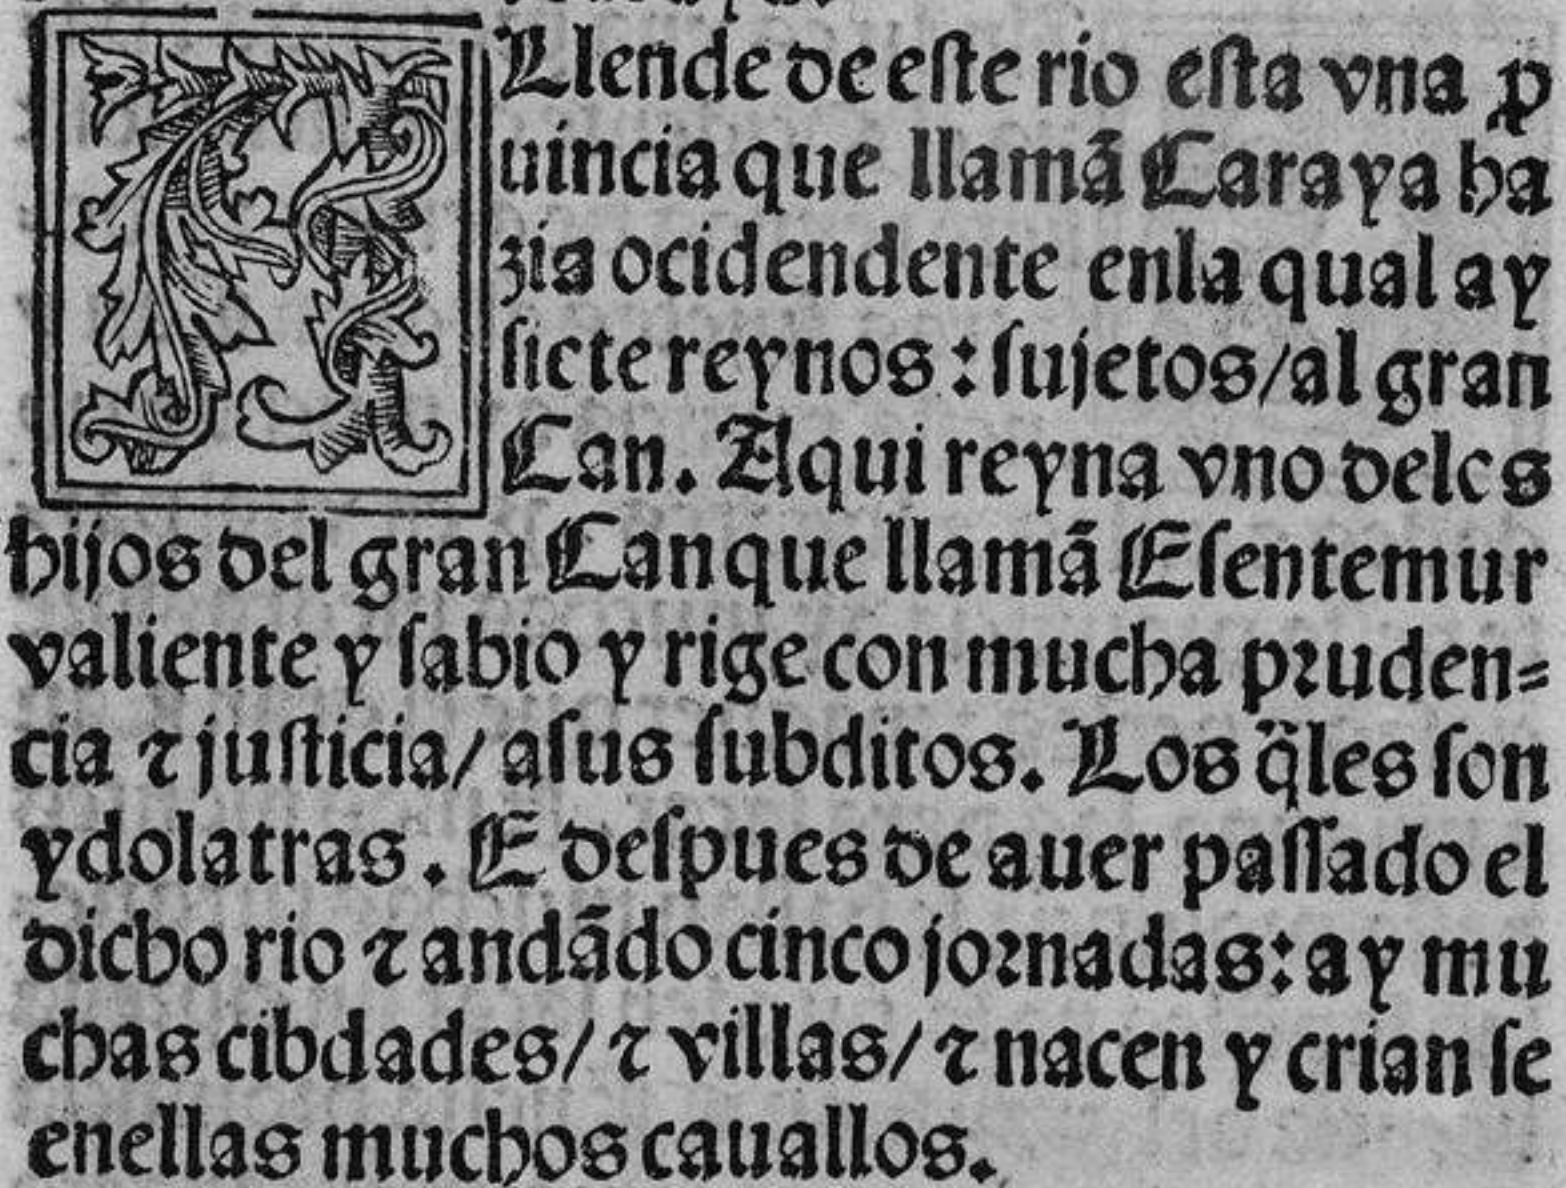 ALlende de este rio esta vna ꝓ
uincia que llamã Caraya ha
zia ocidendente enla qual ay
siete reynos : sujetos/al gran
Can. Aqui reyna vno delos
hijos del gran Can que llamã Esentemur
valiente y sabio y rige con mucha pruden=
cia ⁊ justicia/ asus subditos. Los q̃les son
ydolatras. E despues de auer passado el
dicho rio ⁊ andãdo cinco jornadas: ay mu
chas cibdades/ ⁊ villas/ ⁊ nacen y crian se
enellas muchos cauallos.